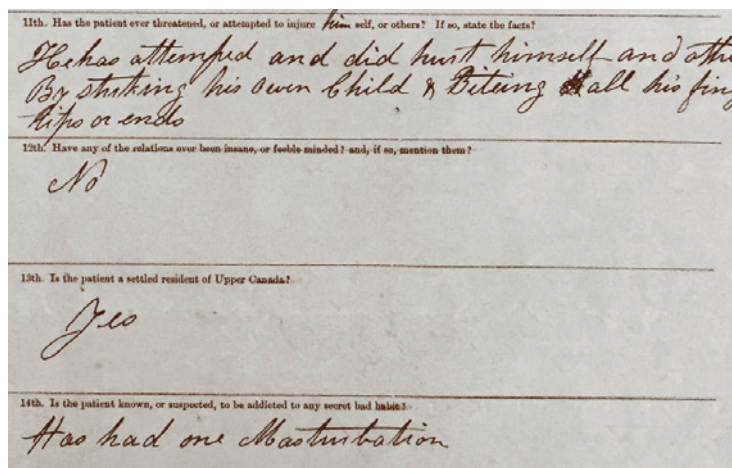 11th. Has the patient ever threatened, or attempted to injure him self, or others? If so, state the facts?
He has attemped and did hurt himself and othe
By striking his owen Child & Biteing all his fing
tips or ends
12th. Have any of the relations ever been insane, or feeble minded? and, if so, mention them?
No
13th. Is the patient a settled resident of Upper Canada?
Yes
14th. Is the patient known, or suspected, to be addicted to any secret bad habit?
Has had one Masturbation